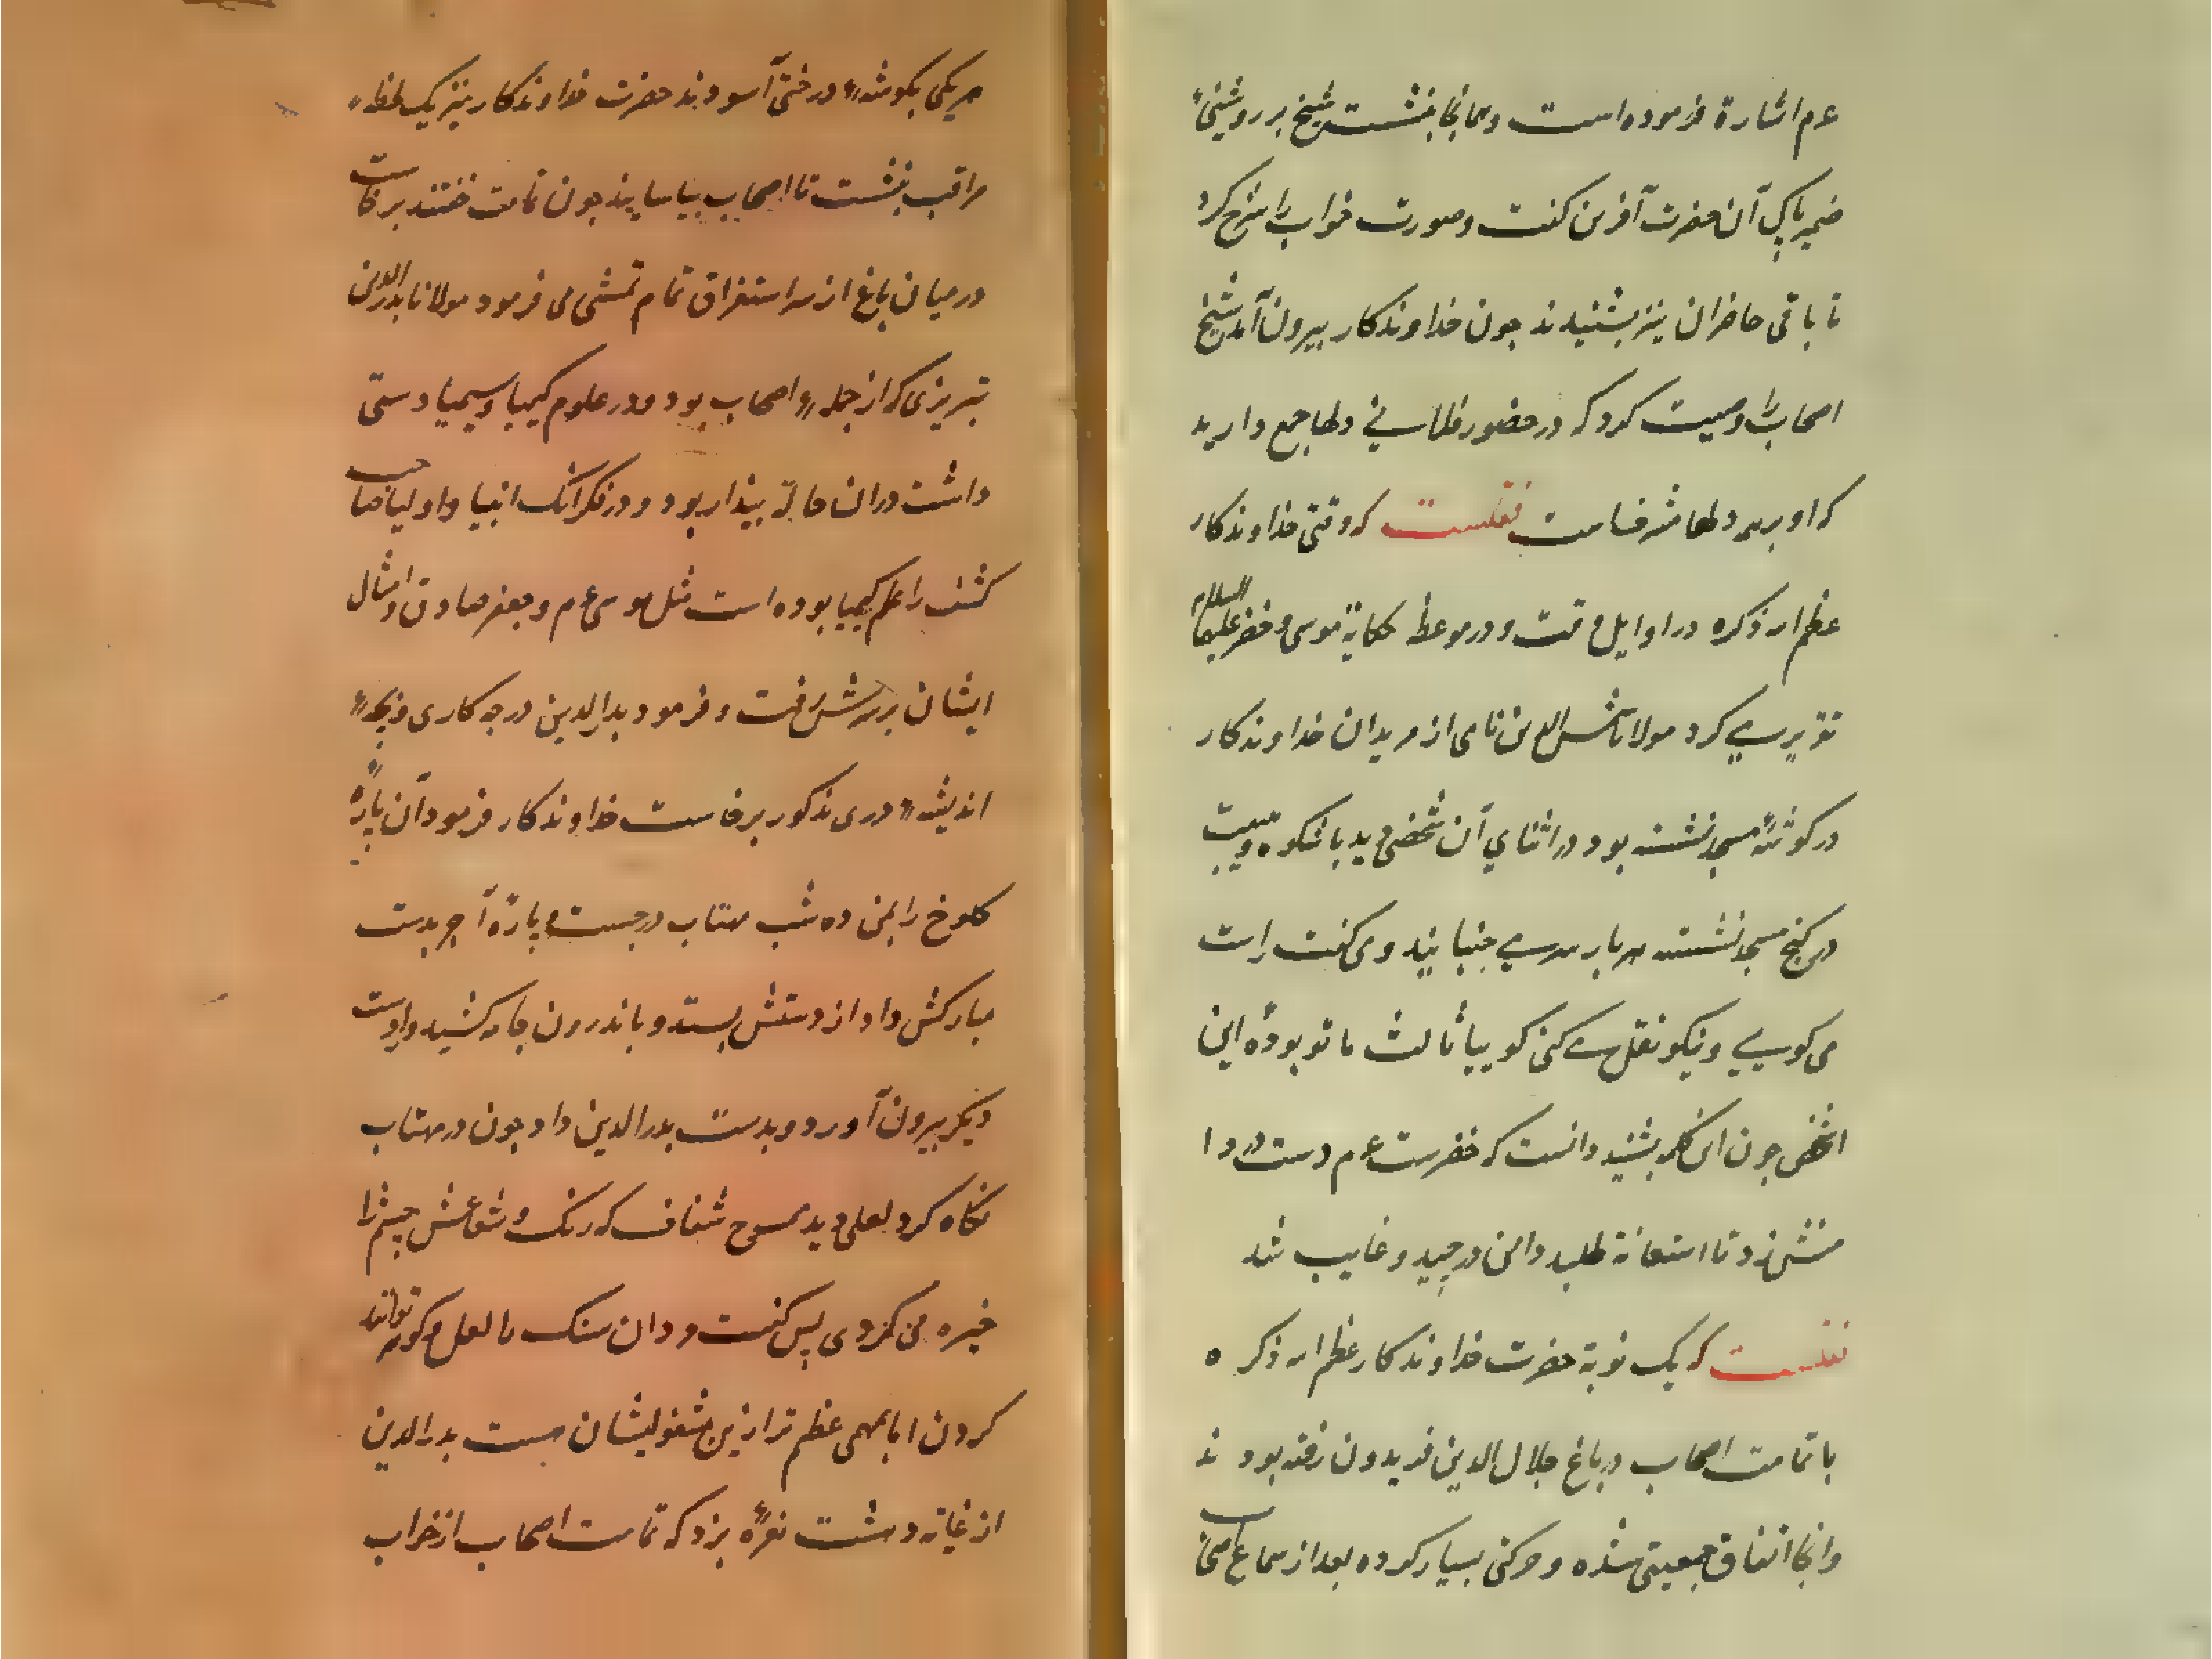 عم اشارة فرموده است و همانجا بنشست شیخ بر روشنیء
ضمیر پاک آن حضرت آفرین کفت و صورت خواب را شرح کرد
تا باقی حاضران نیز بشنیدند جون خداوندکار بیرون آمد شیخ
اصحاب را وصیت کرد که در حضور فلانی دلها جمع دارید
که او بر همه دلها مشرفست نقلست که وقتی خداوندکار
عظم الله ذکره در اوایل وقت و در موعظ حکایة موسی و خضر علیهما السلام
تقریر می کرد مولانا شمس الدین نامی از مریدان خداوندکار
در کوشهٔ مسجد نشسته بود در اثنای آن شخصی دید باشکوه و هیبت
در کنج مسجد نشسته هر بار سر می جنبانید و می کفت راست
می کویی و نیکو نقل می کنی کوییا ثالث ما تو بودهٔ این
شخص جون این کلمه بشنید دانست که خضرست عم دست در دا
منش زد تا استعانة طلبد دامن درجید و غایب شد
نقلست که یک نوبة حضرت خداوندکار عظم الله ذکره
با تمامت اصحاب در باغ جلال الدین فریدون رفته بودند
و آنجا اتفاق جمعیتی شده و حرکتی بسیار کرده بعد از سماع
هریکی بکوشهء درختی آسودند حضرت خداوندکار نیز یک لحظه
مراقب بنشست تا اصحاب بیاسایند جون تمامت خفتند برخاست
در میان باغ از سر استغراق تمام تمشی می فرمود مولانا بدرالدین
تبریزی که از جملهء اصحاب بود و در علوم کیمیا و سیمیا دستی
داشت در ان حالة بیدار بود و در فکر انک انبیا و اولیا صاحب
کشف را علم کیمیا بوده است مثل موسی عم و جعفر صادق و امثال
ایشان بر سرش رفت و فرمود بدرالدین در جه کاری و بجه
اندیشهء دری مذکور برخاست خداوندکار فرمود آن پارهٔ
کلوخ را بمن ده شب مهتاب درجست و پارهٔ آجر بدست
مبارکش داد از دستش بستد و باندرون جامه کشید و او دست
دیکر بیرون آورد و بدست بدرالدین داد جون در مهتاب
نکاه کرد لعلی دید ممسوح شفاف که رنک و شعاعش جشم را
خیره می کردی پس کفت مردان سنک را لعل و کوهر توانند
کردن اما مهمی عظم تر ازین مشغولیشان هست بدرالدین
از غایة دهشت نعرهٔ بزد که تمامت اصحاب از خواب